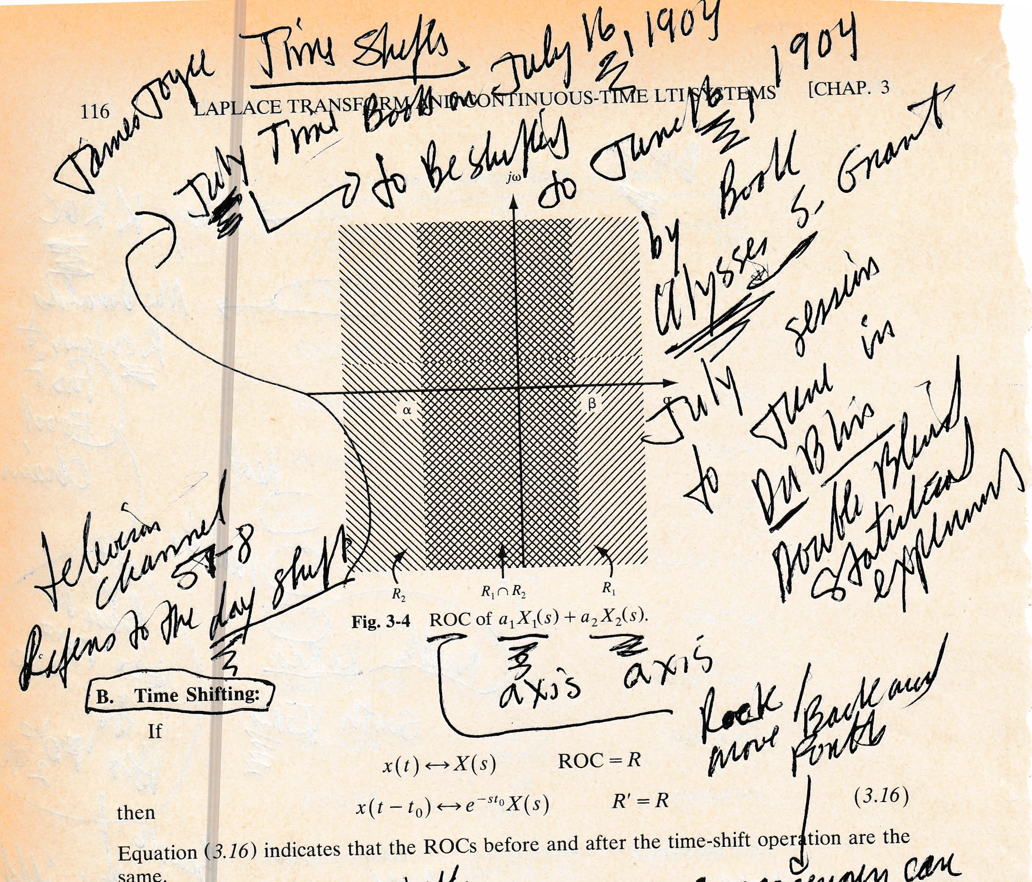 James Joyce Time Shifts
July Time Book on July 16, 1904
116 LAPLACE TRANSFORM AND CONTINUOUS-TIME LTI SYSTEMS [CHAP. 3
to Be shifting to June 16, 1904
by Book
Ulysses S. Grant
July session
to June in
DuBlin
Double Blind
Statistical
jω
σ
α
β
R₂
R₁∩R₂
R₁
Television
Channel
57-8
Refers to the day shift
Fig. 3-4 ROC of a₁X₁(s) + a₂X₂(s).
axis axis
Rock /
move Back and
Forth
B. Time Shifting:
If
x(t) ↔ X(s) ROC = R
then
x(t − t₀) ↔ e^{−st₀}X(s) R′ = R (3.16)
Equation (3.16) indicates that the ROCs before and after the time-shift operation are the
same.
can